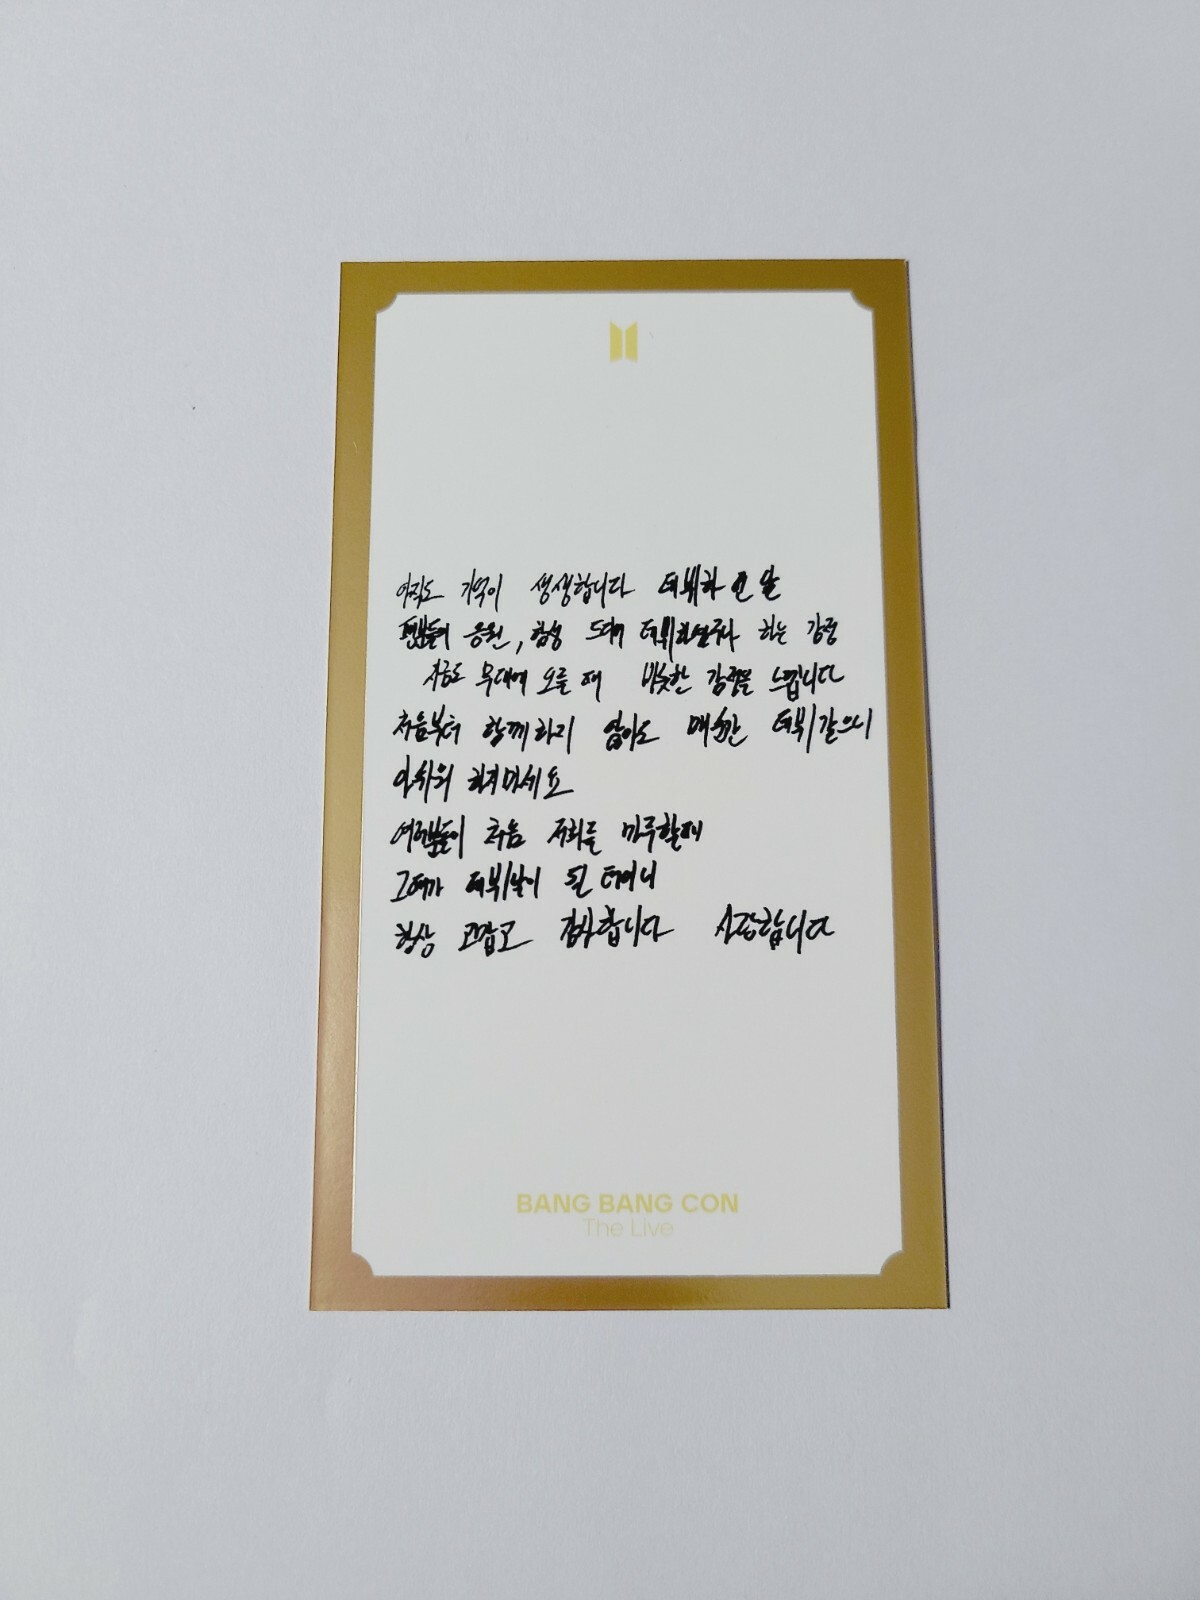 아직도 기억이 생생합니다 데뷔하던 날
팬분들의 응원, 함성 드디어 데뷔하였구나 하는 감정
지금도 무대에 오를 때 비슷한 감정을 느낍니다
처음부터 함께하지 않아도 매순간 데뷔같으니
아쉬워 하지마세요
여러분들이 처음 저희를 마주할때
그때가 데뷔날이 될 테이니
항상 고맙고 감사합니다 사랑합니다
BANG BANG CON
The Live